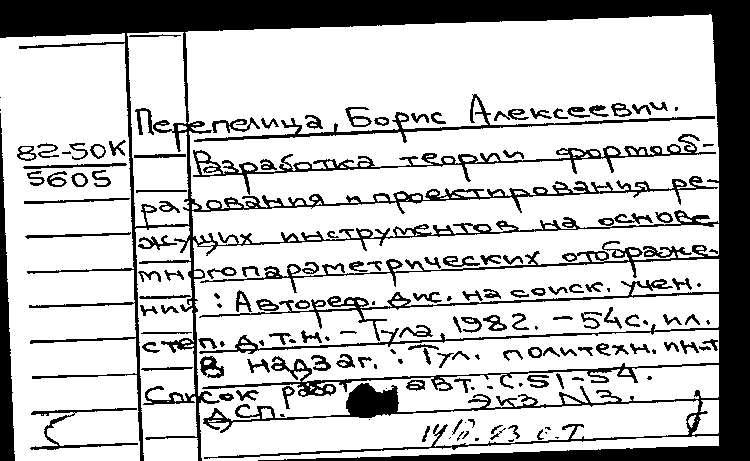 Перепелица, Борис Алексеевич.
82-50К
5605
Разработка теории формооб-
разования и проектирования ре-
жущих инструментов на основе
многопараметрических отображе-
ний : Автореф. дис. на соиск. учен.
степ. д.т.н. – Тула, 1982. – 54с., ил.
В надзаг. : Тул. политехн. ин-т
Список работ авт. : с. 51-54.
ДСП. Экз. N3.
с.т.